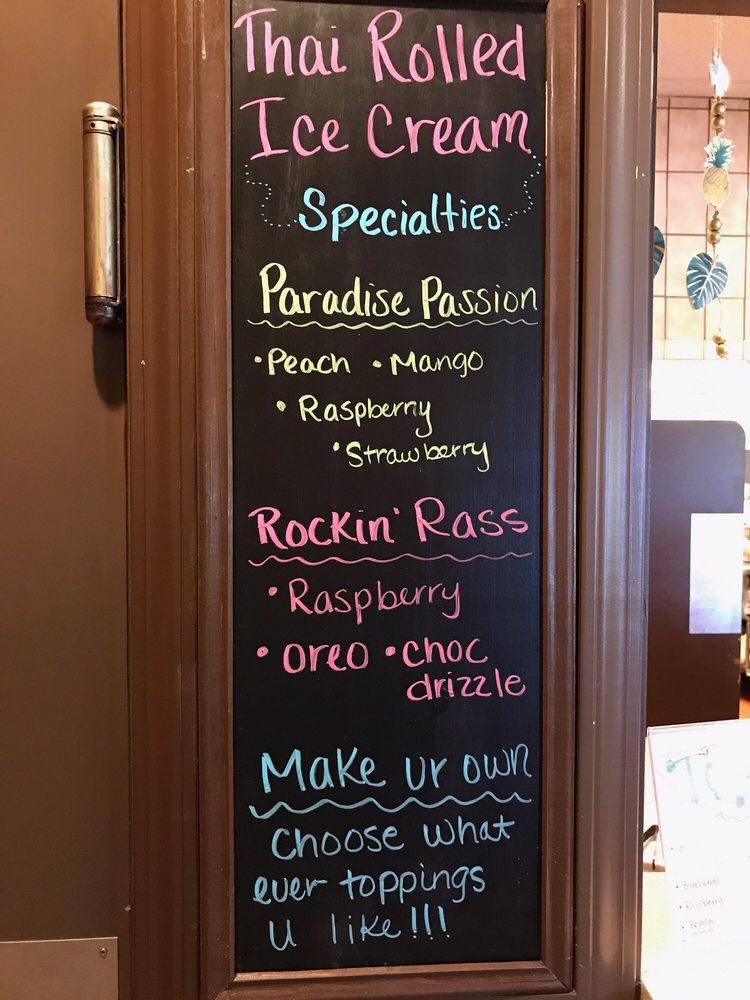 Thai Rolled
Ice Cream
Specialties
Paradise Passion
• Peach • Mango
• Raspberry
• Strawberry
Rockin' Rass
• Raspberry
• oreo • choc
drizzle
Make ur own
Choose what
ever toppings
u like!!!
• Blueberries
• Raspberry
• Peach